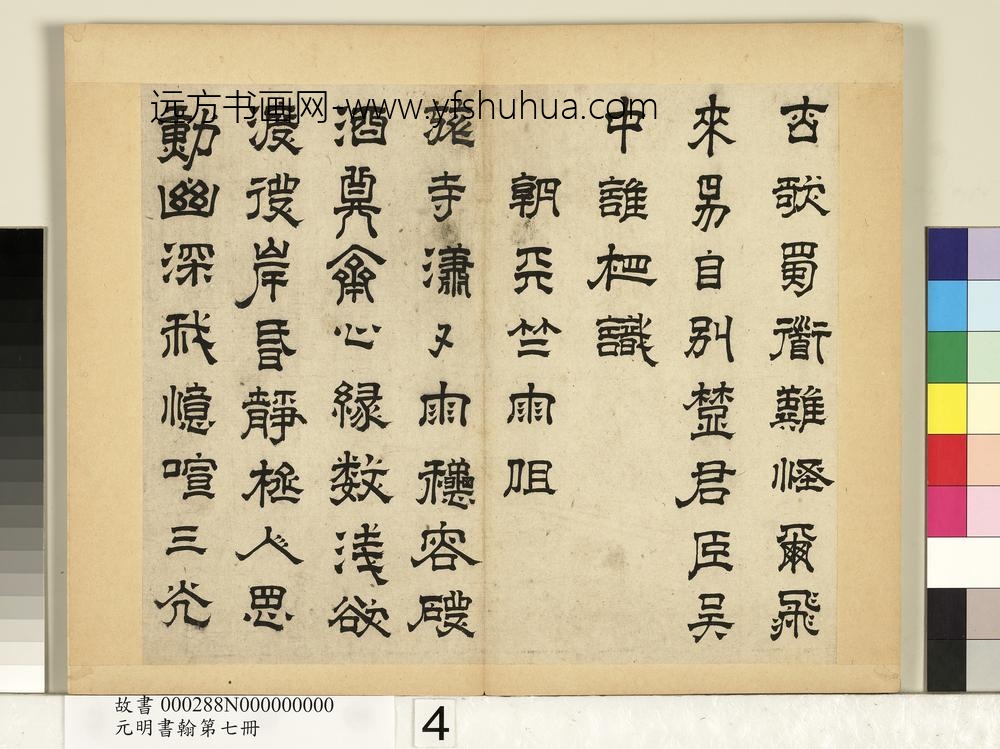 远方书画网-www.yfshuhua.com
古歌蜀衟難怪爾飛
來易自别楚君臣吴
中誰杷識
朝天竺雨咀
蕭寺瀟〻雨穩容
酒奠齋心縁数浅欲
渡彼岸昏静極人思
動幽深我憶喧三
故書 000288N000000000
元明書翰第七冊
4